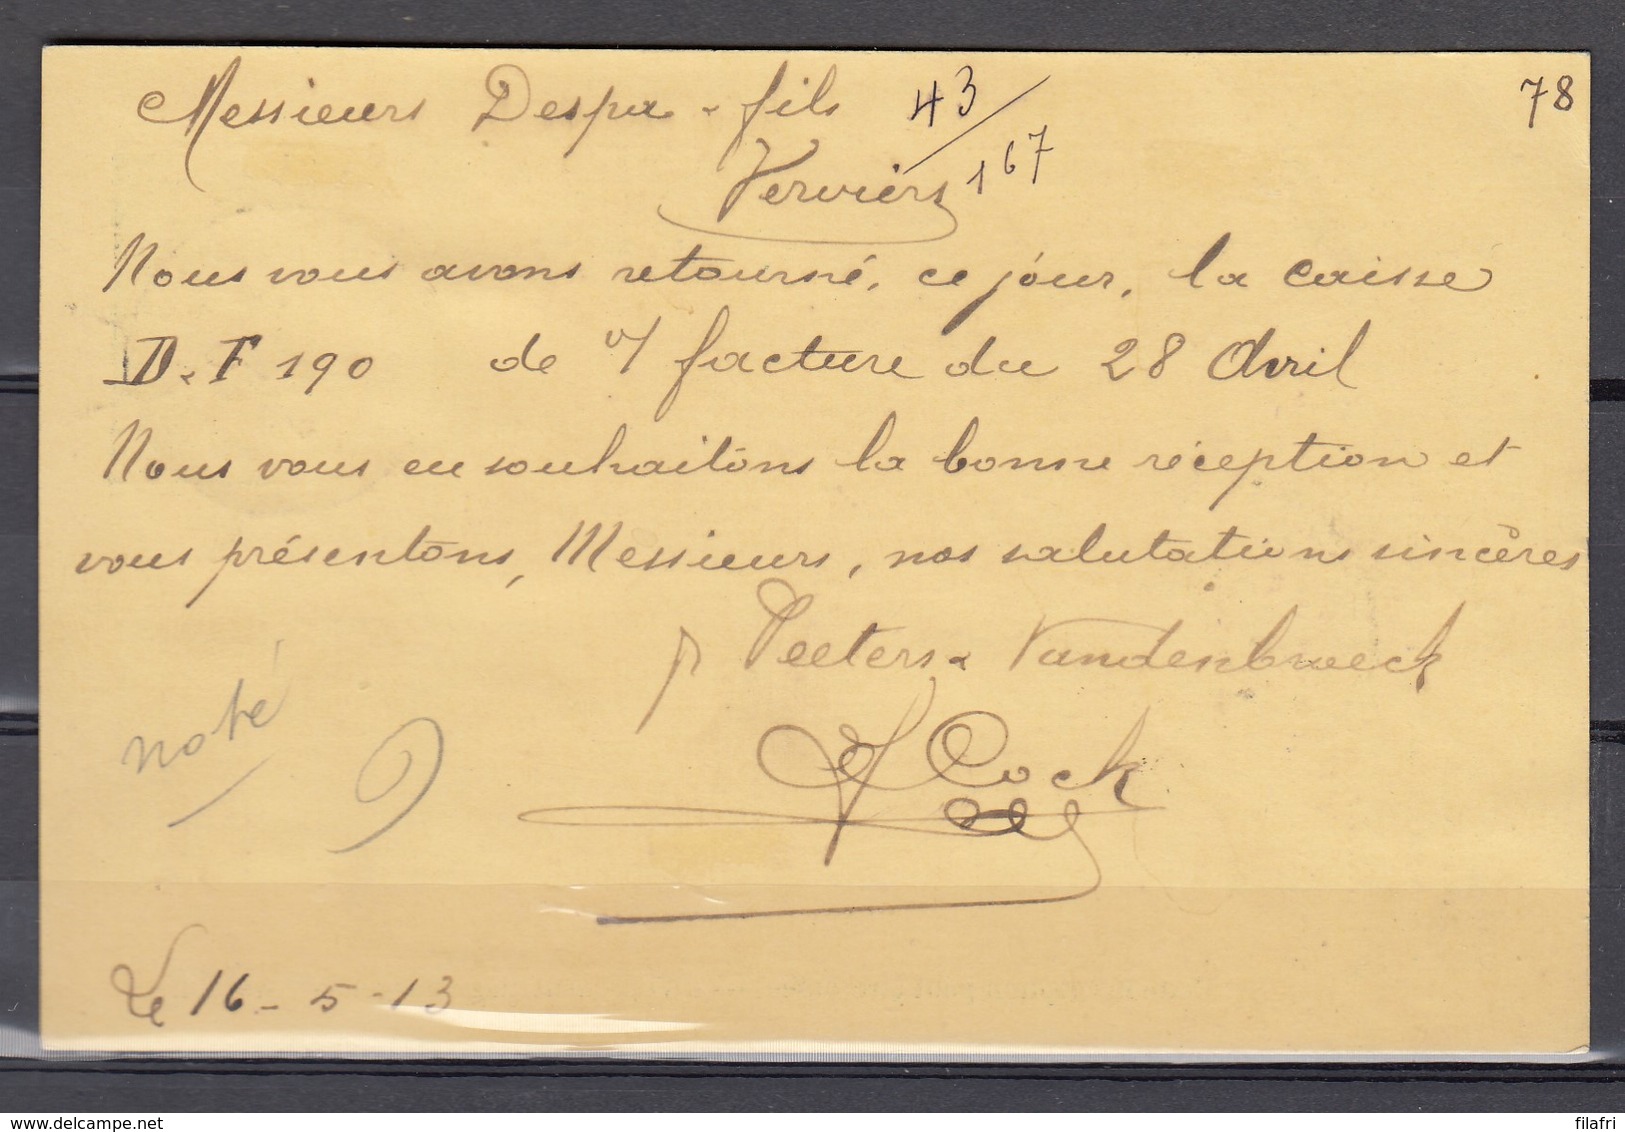 78
Messieurs Despa & fils 43/167
Verviers
Nous vous avons retourné, ce jour, la caisse
D.F 190 de v/ facture du 28 Avril
Nous vous en souhaitons la bonne réception et
vous présentons, Messieurs, nos salutations sincères
pr Peeters & Vandenbroeck
Cock
noté
Le 16-5-13
www.delcampe.net
filafri